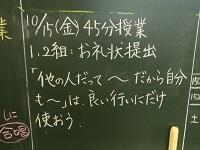 10/15(金) 45分授業
1、2組：お礼状提出
「他の人だって～だから自分
も～」は、良い行いにだけ
使おう。
業
合唱
土